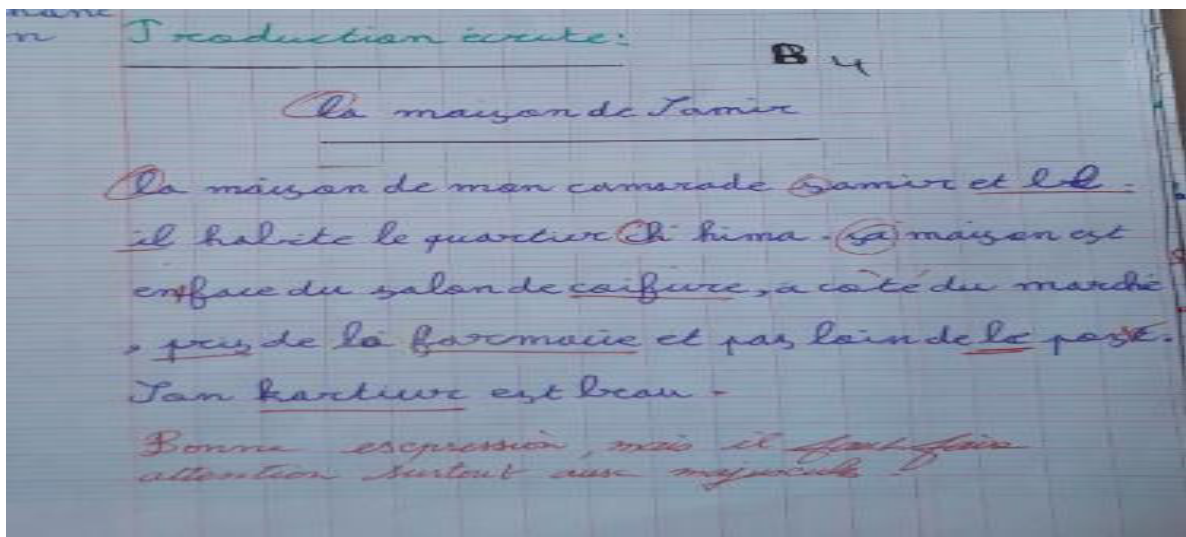 n Production écrite:
B 4
la maison de Samir
la maison de mon camarade samir et
il habite le quartier Chi hima. sa maison est
enfface du salon de coifure, a coté du marché
, pres de la farmacie et pas loin de le poste.
Son kartiure est beau.
Bonne expression, mais il faut faire
attention surtout aux majuscule !